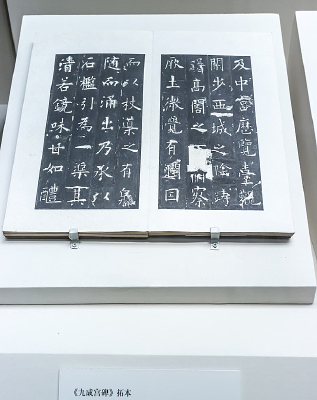 及中宮歷覽臺觀
閑步西城之陰躊
躇高閣之俯察
厥土微覺有潤因
而以杖導之有泉
随而涌出乃承以
石檻引為一渠其
清若鏡味甘如醴
《九成宫碑》拓本